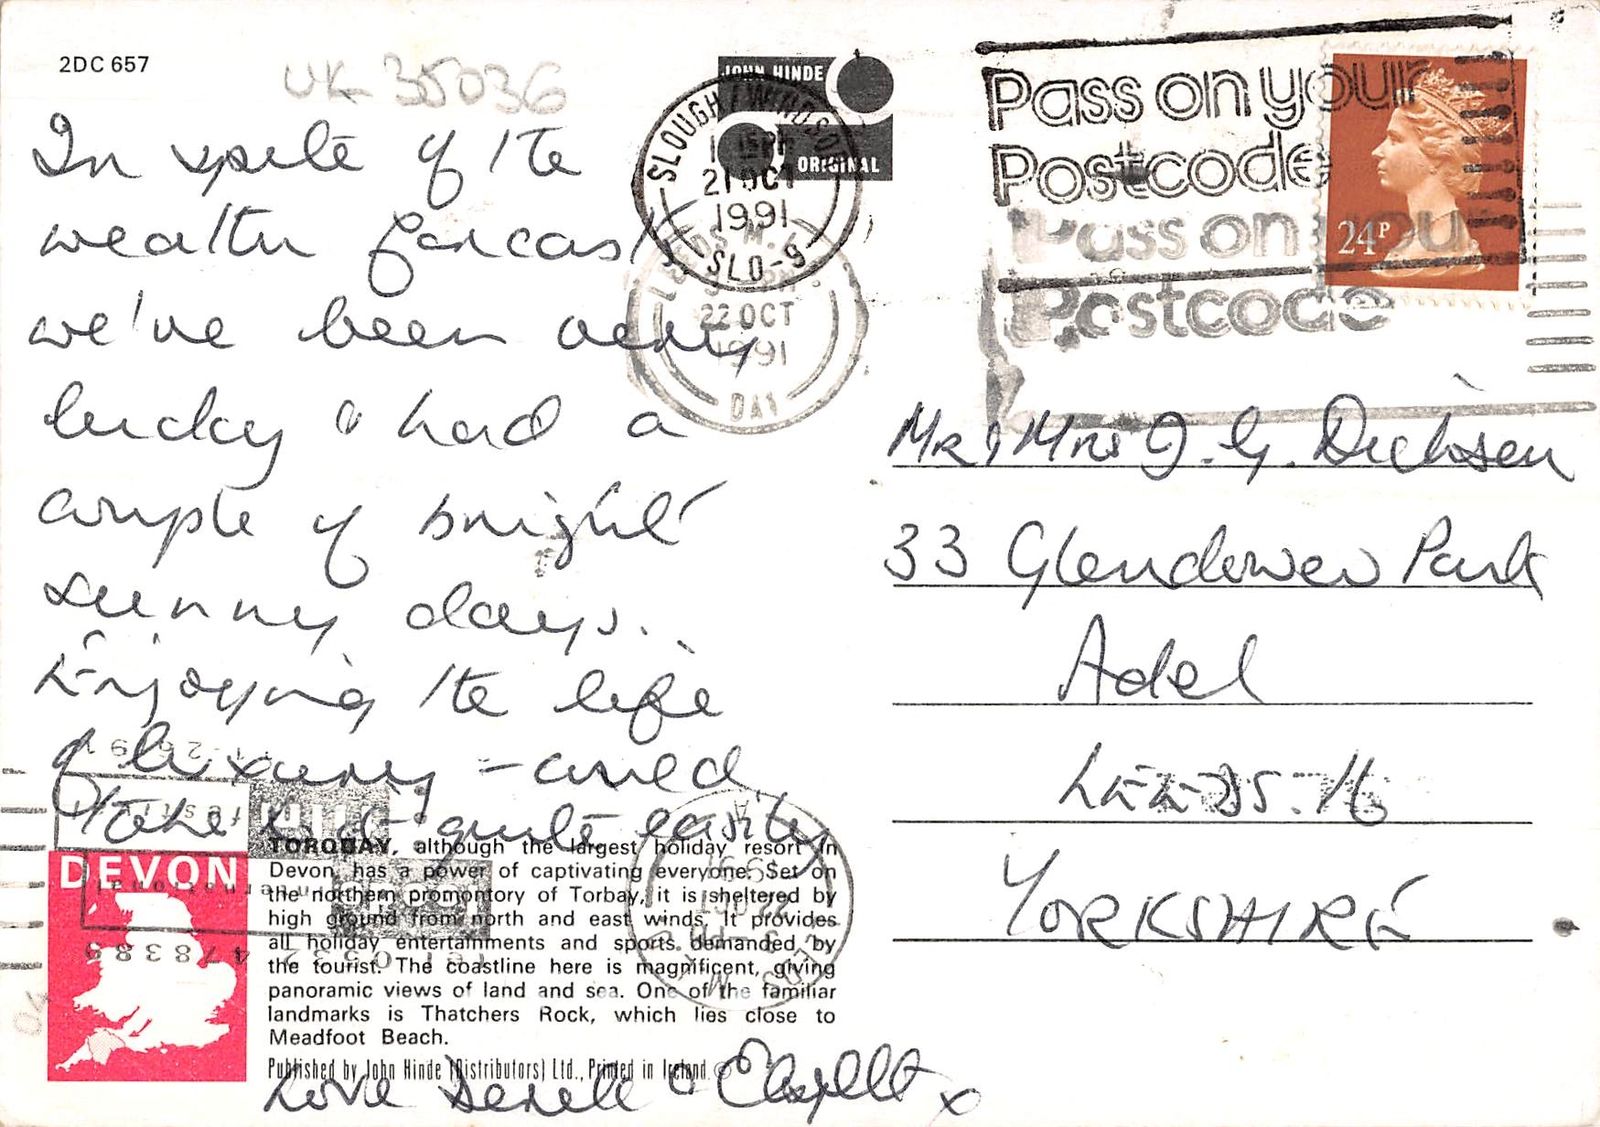 2DC 657
UK 35036
JOHN HINDE
ORIGINAL
SLOUGH / WINDSOR
21 OCT
1991
SLO-9
LEEDS
22 OCT
1991
DAY
Pass on your
Postcode
Pass on your
Postcode
24P
In spite of the
weather forcast
we've been very
lucky & had a
couple of bright
sunny days.
Enjoying the life
of luxury - could
take to it quite easily
Love & x
Mr & Mrs J. G. Dickson
33 Glendower Park
Adel
LEEDS. 16
YORKSHIRE
DEVON
TORQUAY, although the largest holiday resort in
Devon, has a power of captivating everyone. Set on
the northern promontory of Torbay, it is sheltered by
high ground from north and east winds. It provides
all holiday entertainments and sports demanded by
the tourist. The coastline here is magnificent, giving
panoramic views of land and sea. One of the familiar
landmarks is Thatchers Rock, which lies close to
Meadfoot Beach.
Published by John Hinde (Distributors) Ltd., Printed in Ireland.